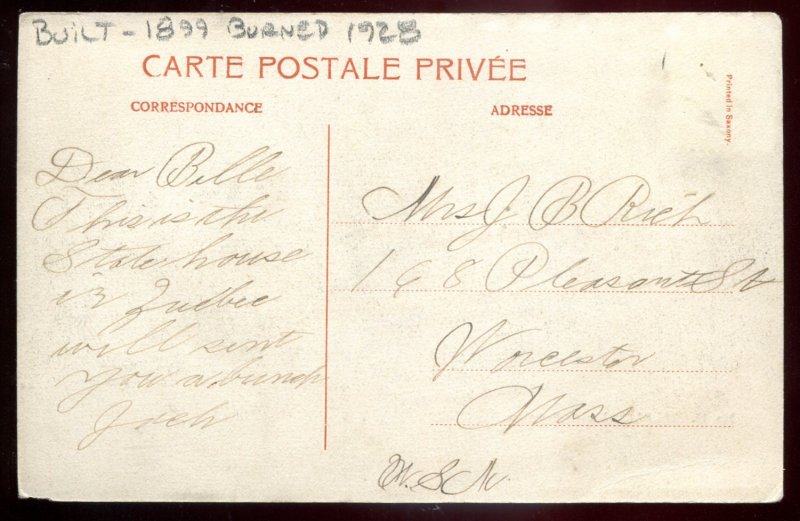 BUILT - 1899 BURNED 1928
CARTE POSTALE PRIVÉE
CORRESPONDANCE
ADRESSE
Printed in Saxony.
Dear Belle
This is the
State house
in Quebec
will sent
you a bunch
Mrs J. B Rich
168 Pleasant St
Worcester
Mass